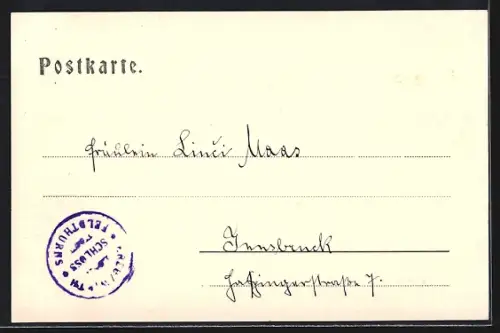 Postkarte.
Fräulein Linči Maas
Innsbruck
Haspingerstraße 7.
SCHLOSS
* FELDTHURNS *